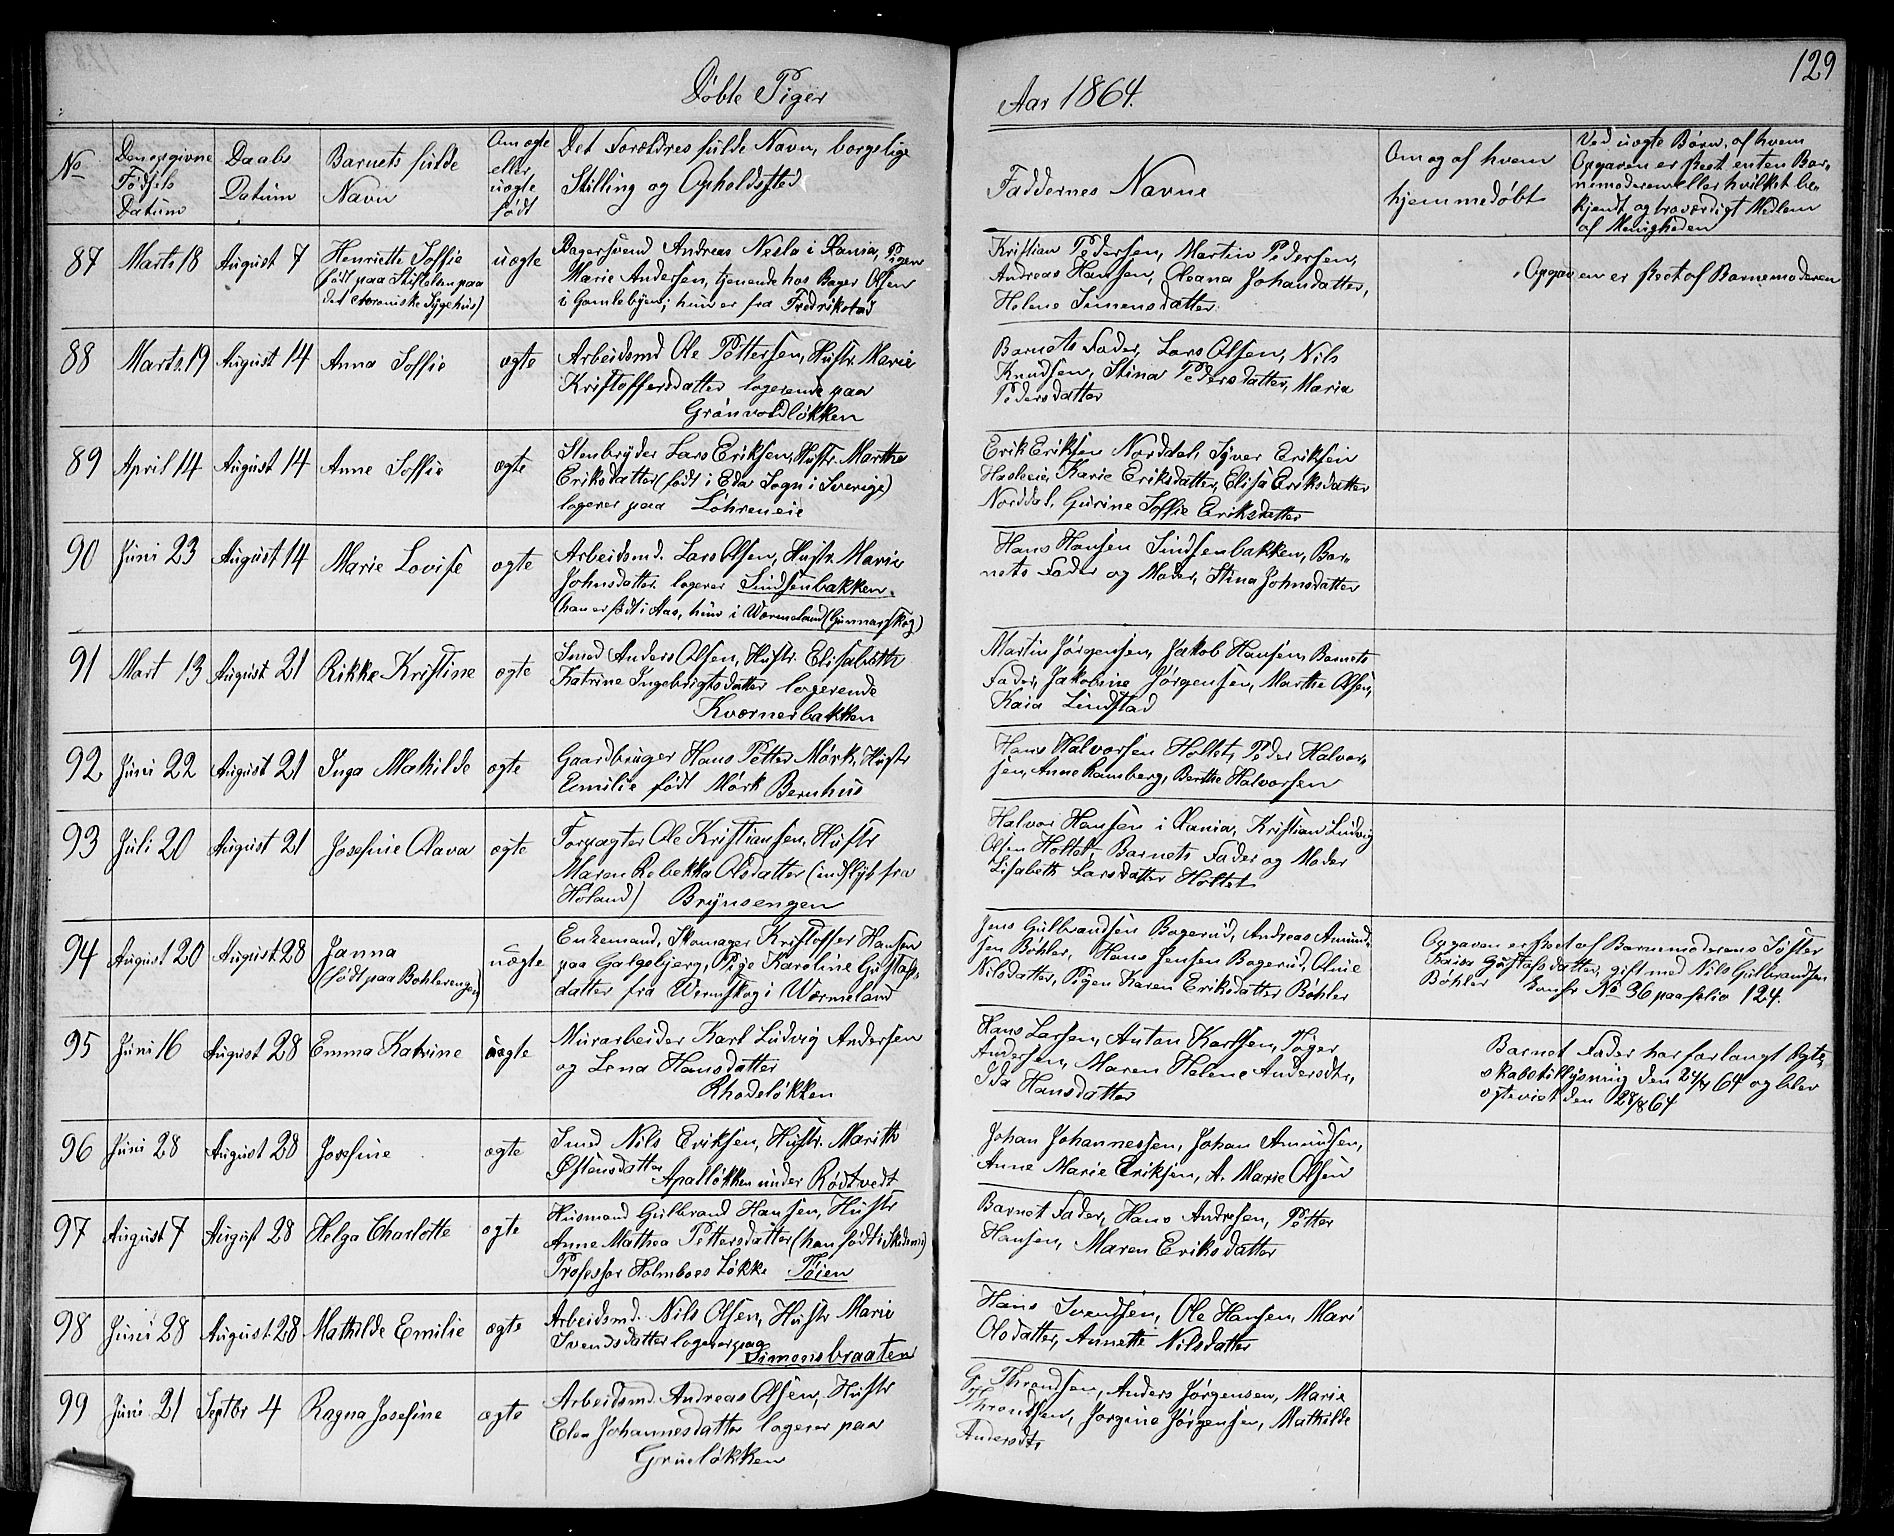 129
Døbte Piger
Aar 1864.
No
Den opgivne
Fødsels
Datum
Daabs
Datum
Barnets fulde
Navn
Om ægte
eller
uægte
født
Det Forældres fulde Navn, borgelige
Stilling og Opholdssted
Faddernes Navne
Om og af hvem
hjemmedøbt
Ved uægte Børn, af hvem
Opgaven er skeet enten Bar-
nemoderen eller hvilket be-
kjendt og troværdigt Medlem
af Menigheden
87 Marts 18 August 7
Henriette Soffie
(født paa Stiftelsen paa
det Civreniske Sygehus)
uægte
Bagersvend Andreas Nesla i Xania, Pigen
Marie Andersen, tjenende hos Bager Olsen
i Gamlebyen; hun er fra Fredrikstad
Kristian Pedersen, Martin Pedersen,
Andreas Hansen, Oleana Johansdatter,
Helene Simensdatter
Opgaven er skeet af Barnemoderen
88 Marts 19 August 14 Anna Soffie ægte
Arbeidsmd Ole Pettersen, Hustr. Marie
Kristoffersdatter logerende paa
Grønvoldløkken
Barnets Fader, Lars Olsen, Nils
Knudsen, Stina Pedersdatter, Maria
Pedersdatter
89 April 14 August 14 Anne Soffie ægte
Stenbryder Lars Eriksen, Hustr. Marthe
Eriksdatter (født i Eda Sogn i Sverige)
logerer paa Løhreneie
Erik Eriksen Norddal, Syver Eriksen
Hasleeie, Karie Eriksdatter, Elisa Eriksdatter
Norddal, Gurine Soffie Eriksdatter
90 Juni 23 August 14 Marie Lovise ægte
Arbeidsmd. Lars Olsen, Hustr. Marie
Johnsdatter logerer Sindsenbakken.
(han er født i Aas, hun i Wermeland (Gunnarskog)
Hans Hansen Sindsenbakken, Bar-
nets Fader og Moder, Stina Johnsdatter
91 Mart 13 August 21 Rikke Kristine ægte
Smed Anders Olsen, Hustr. Elisabeth
Katrine Ingebrigtsdatter logerende
Kværnerbakken
Martin Jørgensen, Jakob Hansen, Barnets
Fader, Jakobine Jørgensen, Marthe Olsen,
Kaia Lindstad
92 Juni 22 August 21 Inga Mathilde ægte
Gaardbruger Hans Petter Mørk, Hustr
Emilie født Mørk Bernhus
Hans Halvorsen Holtet, Peder Halvor-
sen, Anne Ramberg, Berthe Halvorsen
93 Juli 20 August 21 Josefine Olava ægte
Forpagter Ole Kristiansen, Hustr
Maren Rebekka Olsdatter (indflytt fra
Høland) Brynsengen
Halvor Hansen i Xania, Kristian Ludvig
Olsen Holtet, Barnets Fader og Moder
Lisabeth Larsdatter Holtet
94 August 20 August 28
Janna
(født paa Bøhlerengen)
uægte
Enkemand, Skomager Kristoffer Hansen
paa Galgebjerg, Pige Karoline Gustafs-
datter fra Wermskog i Wærmeland
Jens Gulbrandsen Bogerud, Andreas Amund-
sen Bøhler, Hans Jensen Bogerud, Oline
Nilsdatter, Pigen Karen Eriksdatter Bøhler
Opgaven er skeet af Barnemoderens Søster
Kaisa Gustafsdatter, gift med Nils Gulbrandsen
Bøhler Confr No 36 paa folio 124.
95 Juni 16 August 28 Emma Katrine uægte
Murarbeider Karl Ludvig Andersen
og Lena Hansdatter
Rhodeløkken
Hans Larsen, Anton Karlsen, Peger
Andersen, Maren Helene Andersdtr,
Ida Hansdatter
Barnet Fader har forlangt Ægte-
skabstillysning den 24/4 64 og blev
ægteviet den 28/8 64
96 Juni 28 August 28 Josefine ægte
Smed Nils Eriksen, Hustr. Marith
Østensdatter Apalløkken under Rødtvedt
Johan Johannessen, Johan Amundsen,
Anne Marie Eriksen, A. Marie Olsen
97 August 7 August 28 Helga Charlotte ægte
Husmand Gulbrand Hansen, Hustr
Anne Mathea Pettersdatter (han født i Skedsmo)
Professor Holmboes Løkke Tøien
Barnet Fader, Hans Andresen, Petter
Hansen, Maren Eriksdatter
98 Juni 28 August 28 Mathilde Emilie ægte
Arbeidsmd. Nils Olsen, Hustr Marie
Svendsdatter logerer paa
Simensbraaten
Hans Svendsen, Ole Hansen, Mari
Olsdatter, Annette Nilsdatter
99 Juni 21 Septbr 4 Ragna Josefine ægte
Arbeidsmd. Andreas Olsen, Hustr
Elen Johannesdatter logerer paa
Grueløkken
G. Throndsen, Anders Jørgensen, Marie
Throndsen, Jorgine Jørgensen, Mathilde
Andersdtr